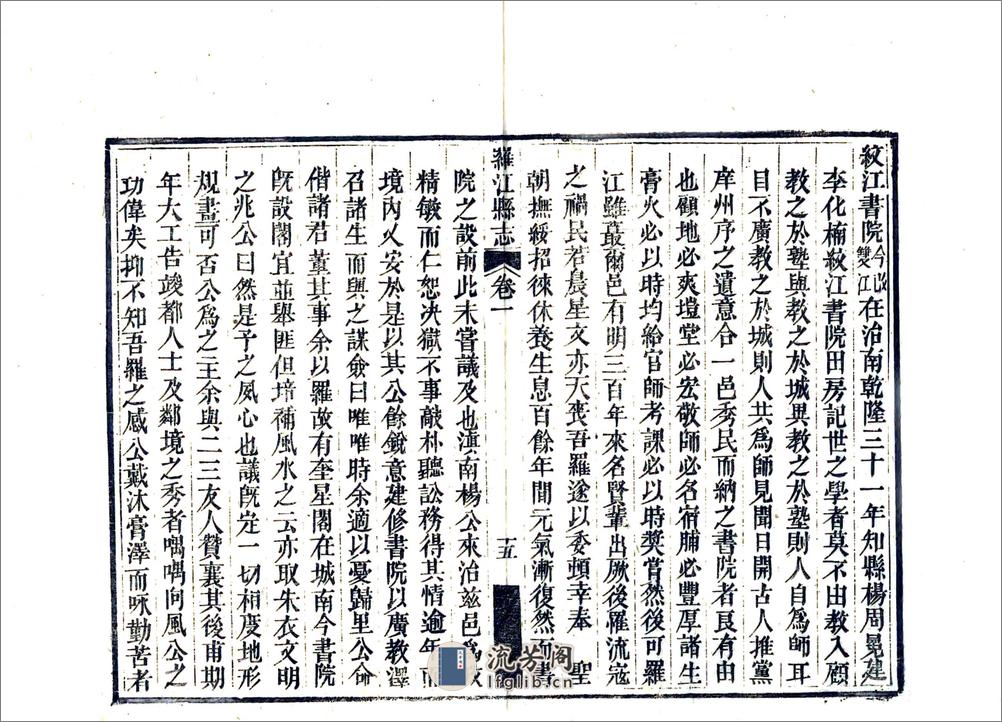 紋江書院今改雙江在治南乾隆三十一年知縣楊周冕建
李化楠紋江書院田房記世之學者莫不由教入顧
教之於塾與教之於城異教之於塾則人自為師耳
目不廣教之於城則人共為師見聞日開古人推黨
庠州序之遺意合一邑秀民而納之書院者良有由
也顧地必爽塏堂必宏敬師必名宿脯必豐厚諸生
膏火必以時均給官師考課必以時獎賞然後可羅
江雖蕞爾邑有明三百年來名賢輩出厥後罹流寇
之禍民若晨星文亦天喪吾羅遂以委頓幸奉 聖
朝撫綏招徠休養生息百餘年間元氣漸復然而書
羅江縣志
卷一
五
院之設前此未嘗議及也滇南楊公來治茲邑為
精敏而仁恕決獄不事敲朴聽訟務得其情逾年而
境內乂安於是以其公餘銳意建修書院以廣教澤
召諸生而與之謀僉曰唯唯時余適以憂歸里公命
偕諸君董其事余以羅故有奎星閣在城南今書院
既設閣宜並舉匪但培補風水之云亦取朱衣文明
之兆公曰然是予之夙心也議既定一切相度地形
規畫可否公為之主余與二三友人贊襄其後甫期
年大工告竣都人士及鄰境之秀者喁喁向風公之
功偉矣抑不知吾羅之感公戴沐膏澤而咏勤苦者
流芳閣
lfglib.cn